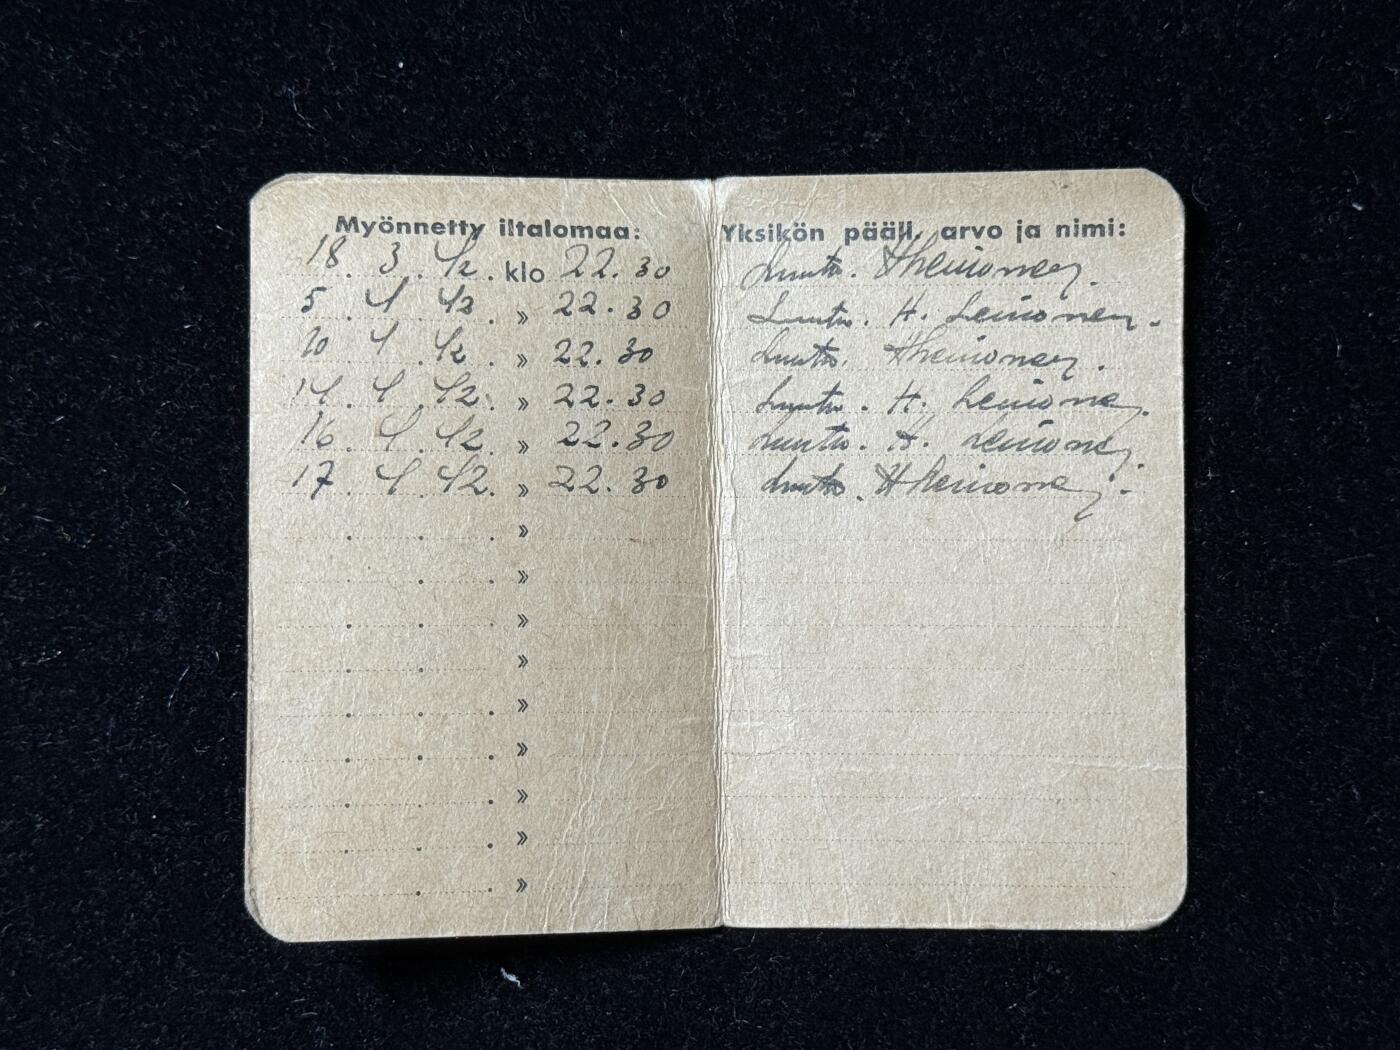 Myönnetty iltalomaa: Yksikön pääll. arvo ja nimi:
18. 3. 42. klo 22.30 Luutn. H Leinonen.
5. 4. 42. » 22.30 Luutn. H. Leinonen.
10. 4. 42. » 22.30 Luutn. H Leinonen.
14. 4. 42. » 22.30 Luutn. H. Leinonen.
16. 4. 42. » 22.30 Luutn. H. Leinonen.
17. 4. 42. » 22.30 Luutn. H Leinonen.
. . . »
. . . »
. . . »
. . . »
. . . »
. . . »
. . . »
. . . »
. . »